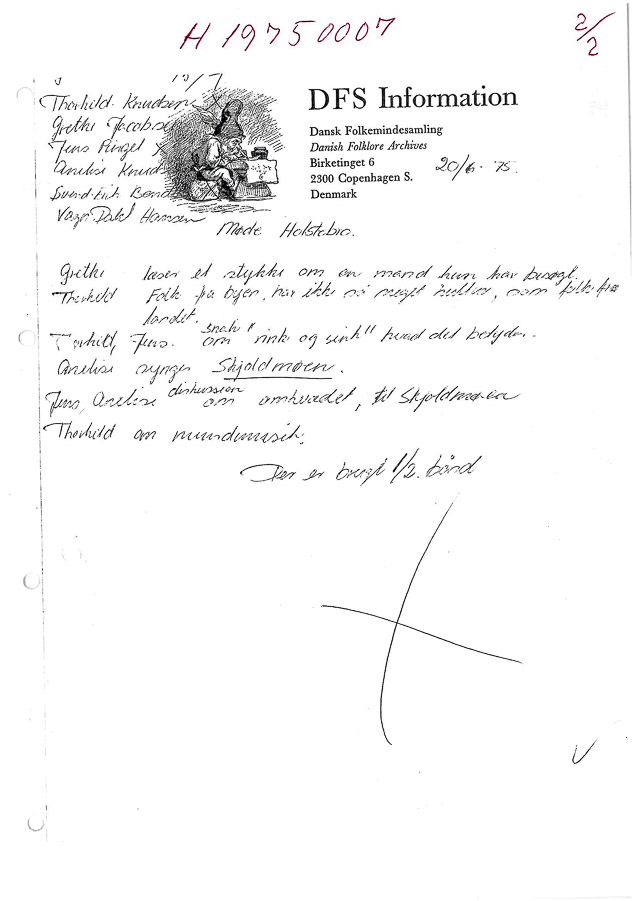 H 19750007
2/2
10/7
Thorkild Knudsen X
Grethe Jacobsen
Jens Ringel X
Anelise Knud
Svend-Erik Bond
Vagn Dahl Hansen
DFS Information
Dansk Folkemindesamling
Danish Folklore Archives
Birketinget 6
2300 Copenhagen S.
Denmark
20/6-75.
Møde Holstebro.
Grethe læser et stykke om en mand hun har besøgt.
Thorkild Folk fra byen, har ikke så meget kultur, som folk fra
landet.
Thorkild, Jens. snak om "rink og sink" hvad det betyder.
Anelise synger Skjoldmøen.
Jens, Anelise diskussion om omkvædet, til Skjoldmøen
Thorkild om mundmusik.
Der er brugt 1/2. bånd